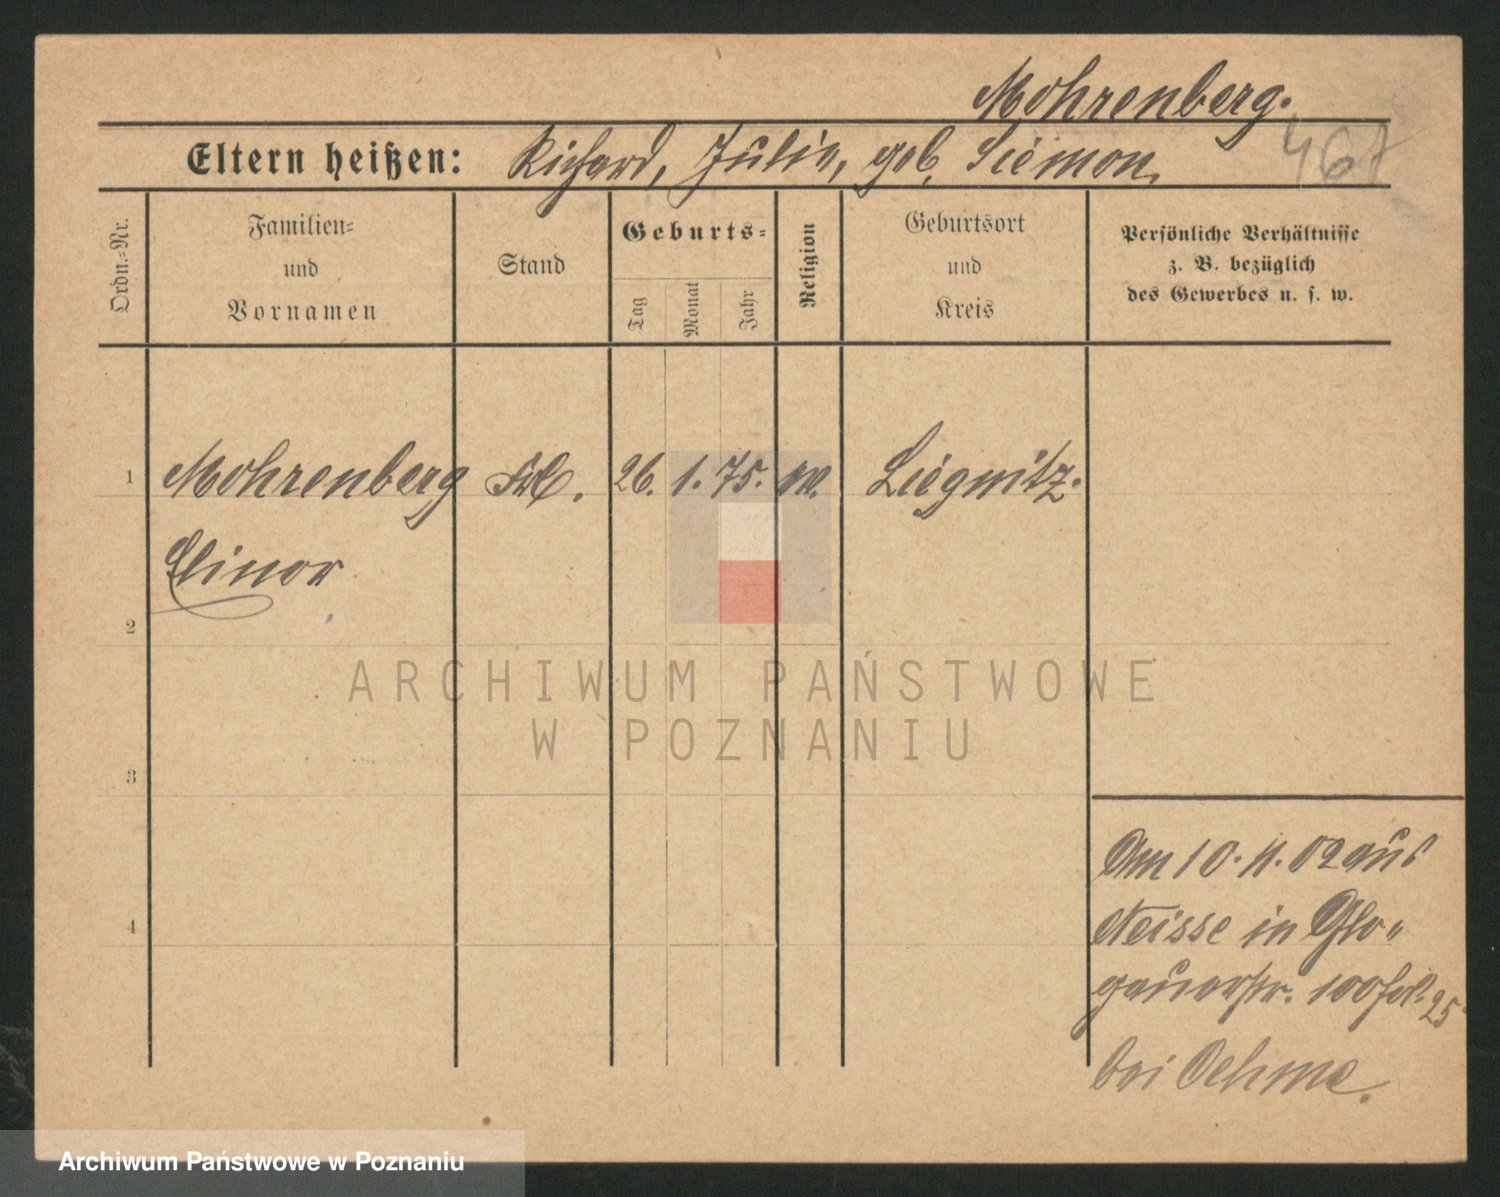 Mohrenberg.
467
Eltern heißen: Richard, Julie, geb. Siemon.
Ordn.-Nr.
Familien-
und
Vornamen
Stand
Geburts-
Tag
Monat
Jahr
Religion
Geburtsort
und
Kreis
Persönliche Verhältnisse
z. B. bezüglich
des Gewerbes u. s. w.
1 Mohrenberg Frl. 26. 1. 75. ev. Liegnitz.
Elinor
2
3
4
ARCHIWUM PAŃSTWOWE
W POZNANIU
Am 10. 11. 02 aus
Neisse in Glo-
gauerstr. 100
bei Oehme.
Archiwum Państwowe w Poznaniu